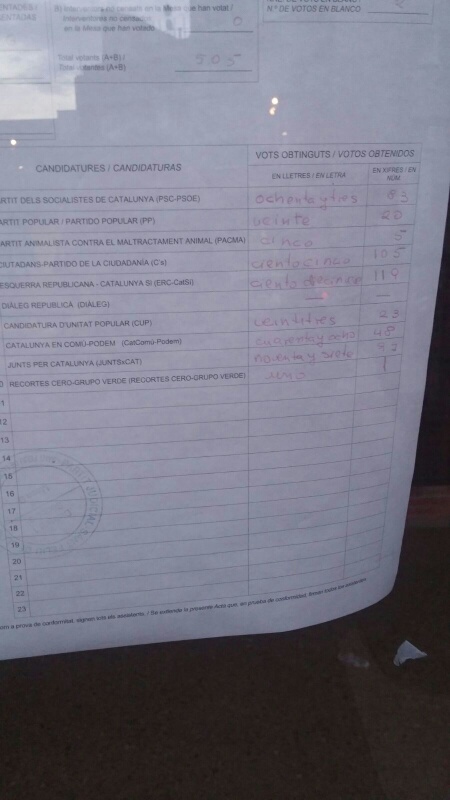 B) Interventors no censats en la Mesa que han votat /
Interventores no censados
en la Mesa que han votado 0
N.º DE VOTOS EN BLANCO
Total votants (A+B) /
Total votantes (A+B) 505
CANDIDATURES / CANDIDATURAS
VOTS OBTINGUTS / VOTOS OBTENIDOS
EN LLETRES / EN LETRA
EN XIFRES / EN NÚM.
PARTIT DELS SOCIALISTES DE CATALUNYA (PSC-PSOE) ochenta y tres 83
PARTIT POPULAR / PARTIDO POPULAR (PP) veinte 20
PARTIT ANIMALISTA CONTRA EL MALTRACTAMENT ANIMAL (PACMA) cinco 5
CIUTADANS-PARTIDO DE LA CIUDADANÍA (C's) ciento cinco 105
ESQUERRA REPUBLICANA - CATALUNYA SÍ (ERC-CatSí) ciento 119
DIÀLEG REPUBLICÀ (DIÀLEG) — —
CANDIDATURA D'UNITAT POPULAR (CUP) veintitres 23
CATALUNYA EN COMÚ-PODEM (CatComú-Podem) cuarenta y ocho 48
JUNTS PER CATALUNYA (JUNTSxCAT) noventa y siete 97
RECORTES CERO-GRUPO VERDE (RECORTES CERO-GRUPO VERDE) uno 1
12
13
14
15
16
17
18
19
20
21
22
23
com a prova de conformitat, signen tots els assistents. / Se extiende la presente Acta que, en prueba de conformidad, firman todos los asistentes